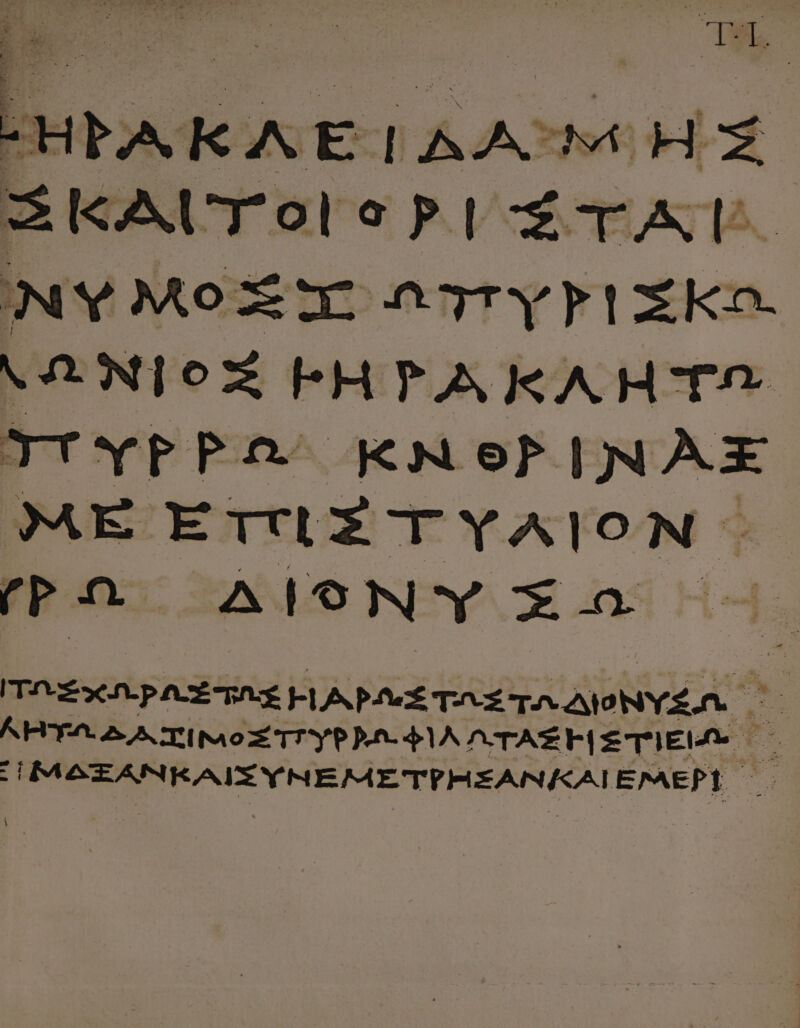 T·I.
ͰΗΡΑΚΛΕΙΔΑ ΜΗΣ
ΣΚΑΙΤΟΙΟΡΙΣΤΑΙ
ΝΥΜΟΣΞΩΠΥΡΙΣΚΩ
ΛΩΝΙΟΣ ͰΗΡΑΚΛΗΤΩ
ΠΥΡΡΩ ΚΝ ΘΡΙΝΑΞ
ΜΕ ΕΠΙΣΤΥΛΙΟΝ
ΥΡΩ ΔΙΟΝΥΣΩ
ΙΤΩΣΧΩΡΩΣΤΩΣͰΙΑΡΩΣΤΩΣΤΩΔΙΟΝΥΣΩ
ΛΗΤΩΔΑΖΙΜΟΣΠΥΡΡΩΦΙΛΩΤΑΣͰΙΣΤΙΕΙΩ
ΣΙΜΑΞΑΝΚΑΙΣΥΝΕΜΕΤΡΗΣΑΝΚΑΙΕΜΕΡΙ